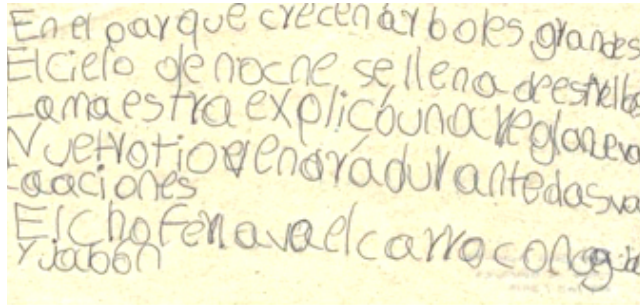 En el parque crecen árboles grandes
El cielo de noche se llena de estrellas
La maestra explicó una regla nueva
Nuetro tio vendrá durante das va
caciones
El chofer lava el carro con agua
y jabón